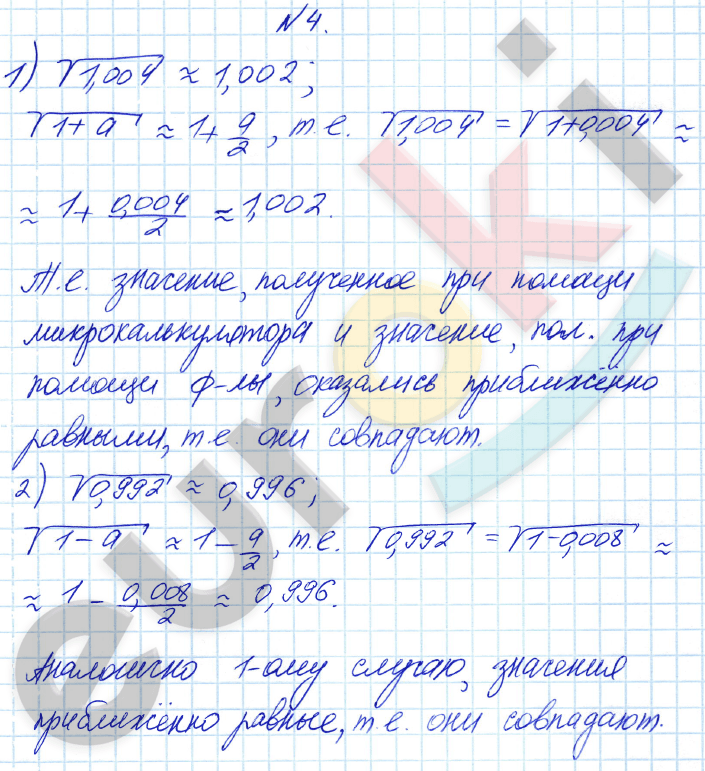 №4.
1) √1,004 ≈ 1,002;
√1+a ≈ 1+a/2, т.е. √1,004 = √1+0,004 ≈
≈ 1+0,004/2 ≈ 1,002.
Т.е. значение, полученное при помощи
микрокалькулятора и значение, пол. при
помощи ф-лы, оказались приближённо
равными, т.е. они совпадают.
2) √0,992 ≈ 0,996;
√1-a ≈ 1-a/2, т.е. √0,992 = √1-0,008 ≈
≈ 1 - 0,008/2 ≈ 0,996.
Аналогично 1-ому случаю, значения
приближённо равные, т.е. они совпадают.
euroki